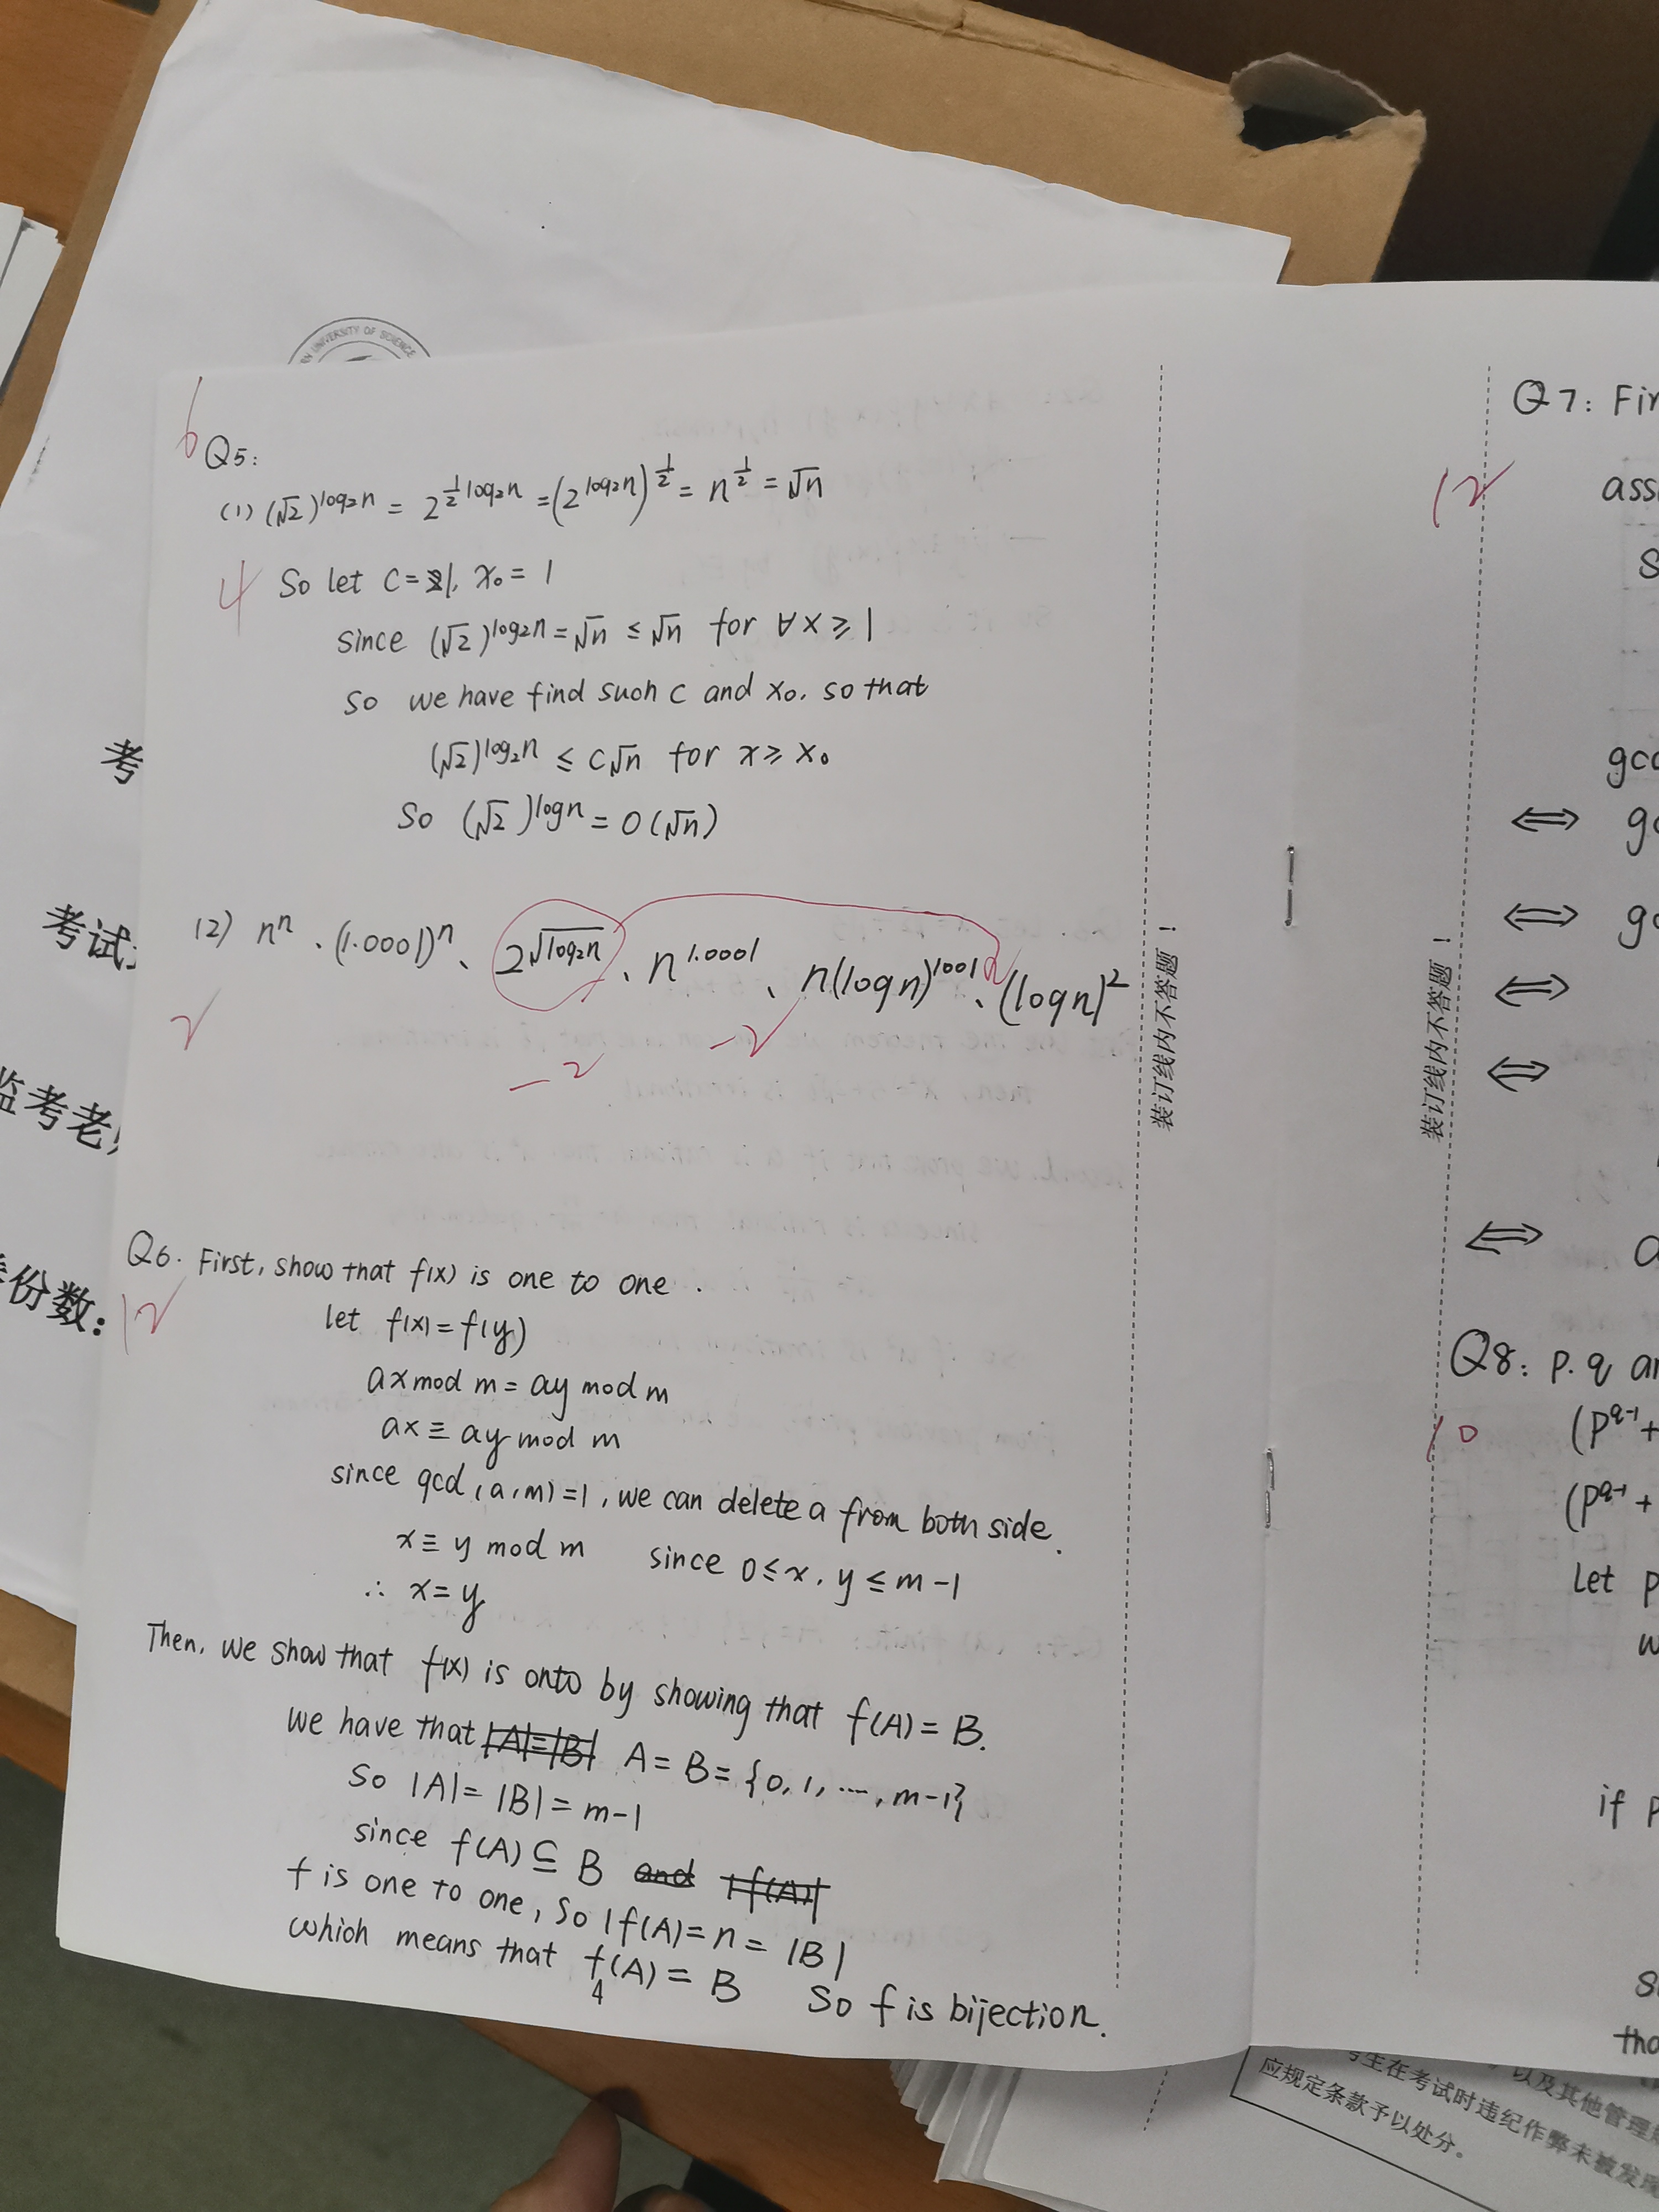 UNIVERSITY OF SCIENCE
6
Q5:
(1) (√2)^{log₂n} = 2^{½log₂n} = (2^{log₂n})^{½} = n^{½} = √n
4
So let C=1, x₀=1
since (√2)^{log₂n} = √n ≤ √n for ∀x≥1
So we have find such c and x₀, so that
(√2)^{log₂n} ≤ c√n for x≥x₀
So (√2)^{logn} = O(√n)
(2) nⁿ、(1.0001)ⁿ、2^{√log₂n}、n^{1.0001}、n(logn)^{1001}、(logn)²
2
-2
-2
Q6. First, show that f(x) is one to one.
12
let f(x)=f(y)
ax mod m = ay mod m
ax ≡ ay mod m
since gcd(a,m)=1, we can delete a from both side.
x ≡ y mod m since 0≤x, y≤m-1
∴ x=y
Then, we show that f(x) is onto by showing that f(A)=B.
we have that |A|=|B| A=B={0,1,…,m-1}
So |A|=|B|=m-1
since f(A)⊆B and |f(A)|
f is one to one, so |f(A)=n=|B|
which means that f(A)=B So f is bijection.
4
装订线内不答题！
装订线内不答题！
Q7:
12
⇔
⇔
⇔
⇔
⇔
Q8: p.q
10
(p^{q-1}+
(p^{q-1}+
Let
if
考
考试
监考老
份数:
考生在考试时违纪作弊未被发现
以及其他管理
应规定条款予以处分。